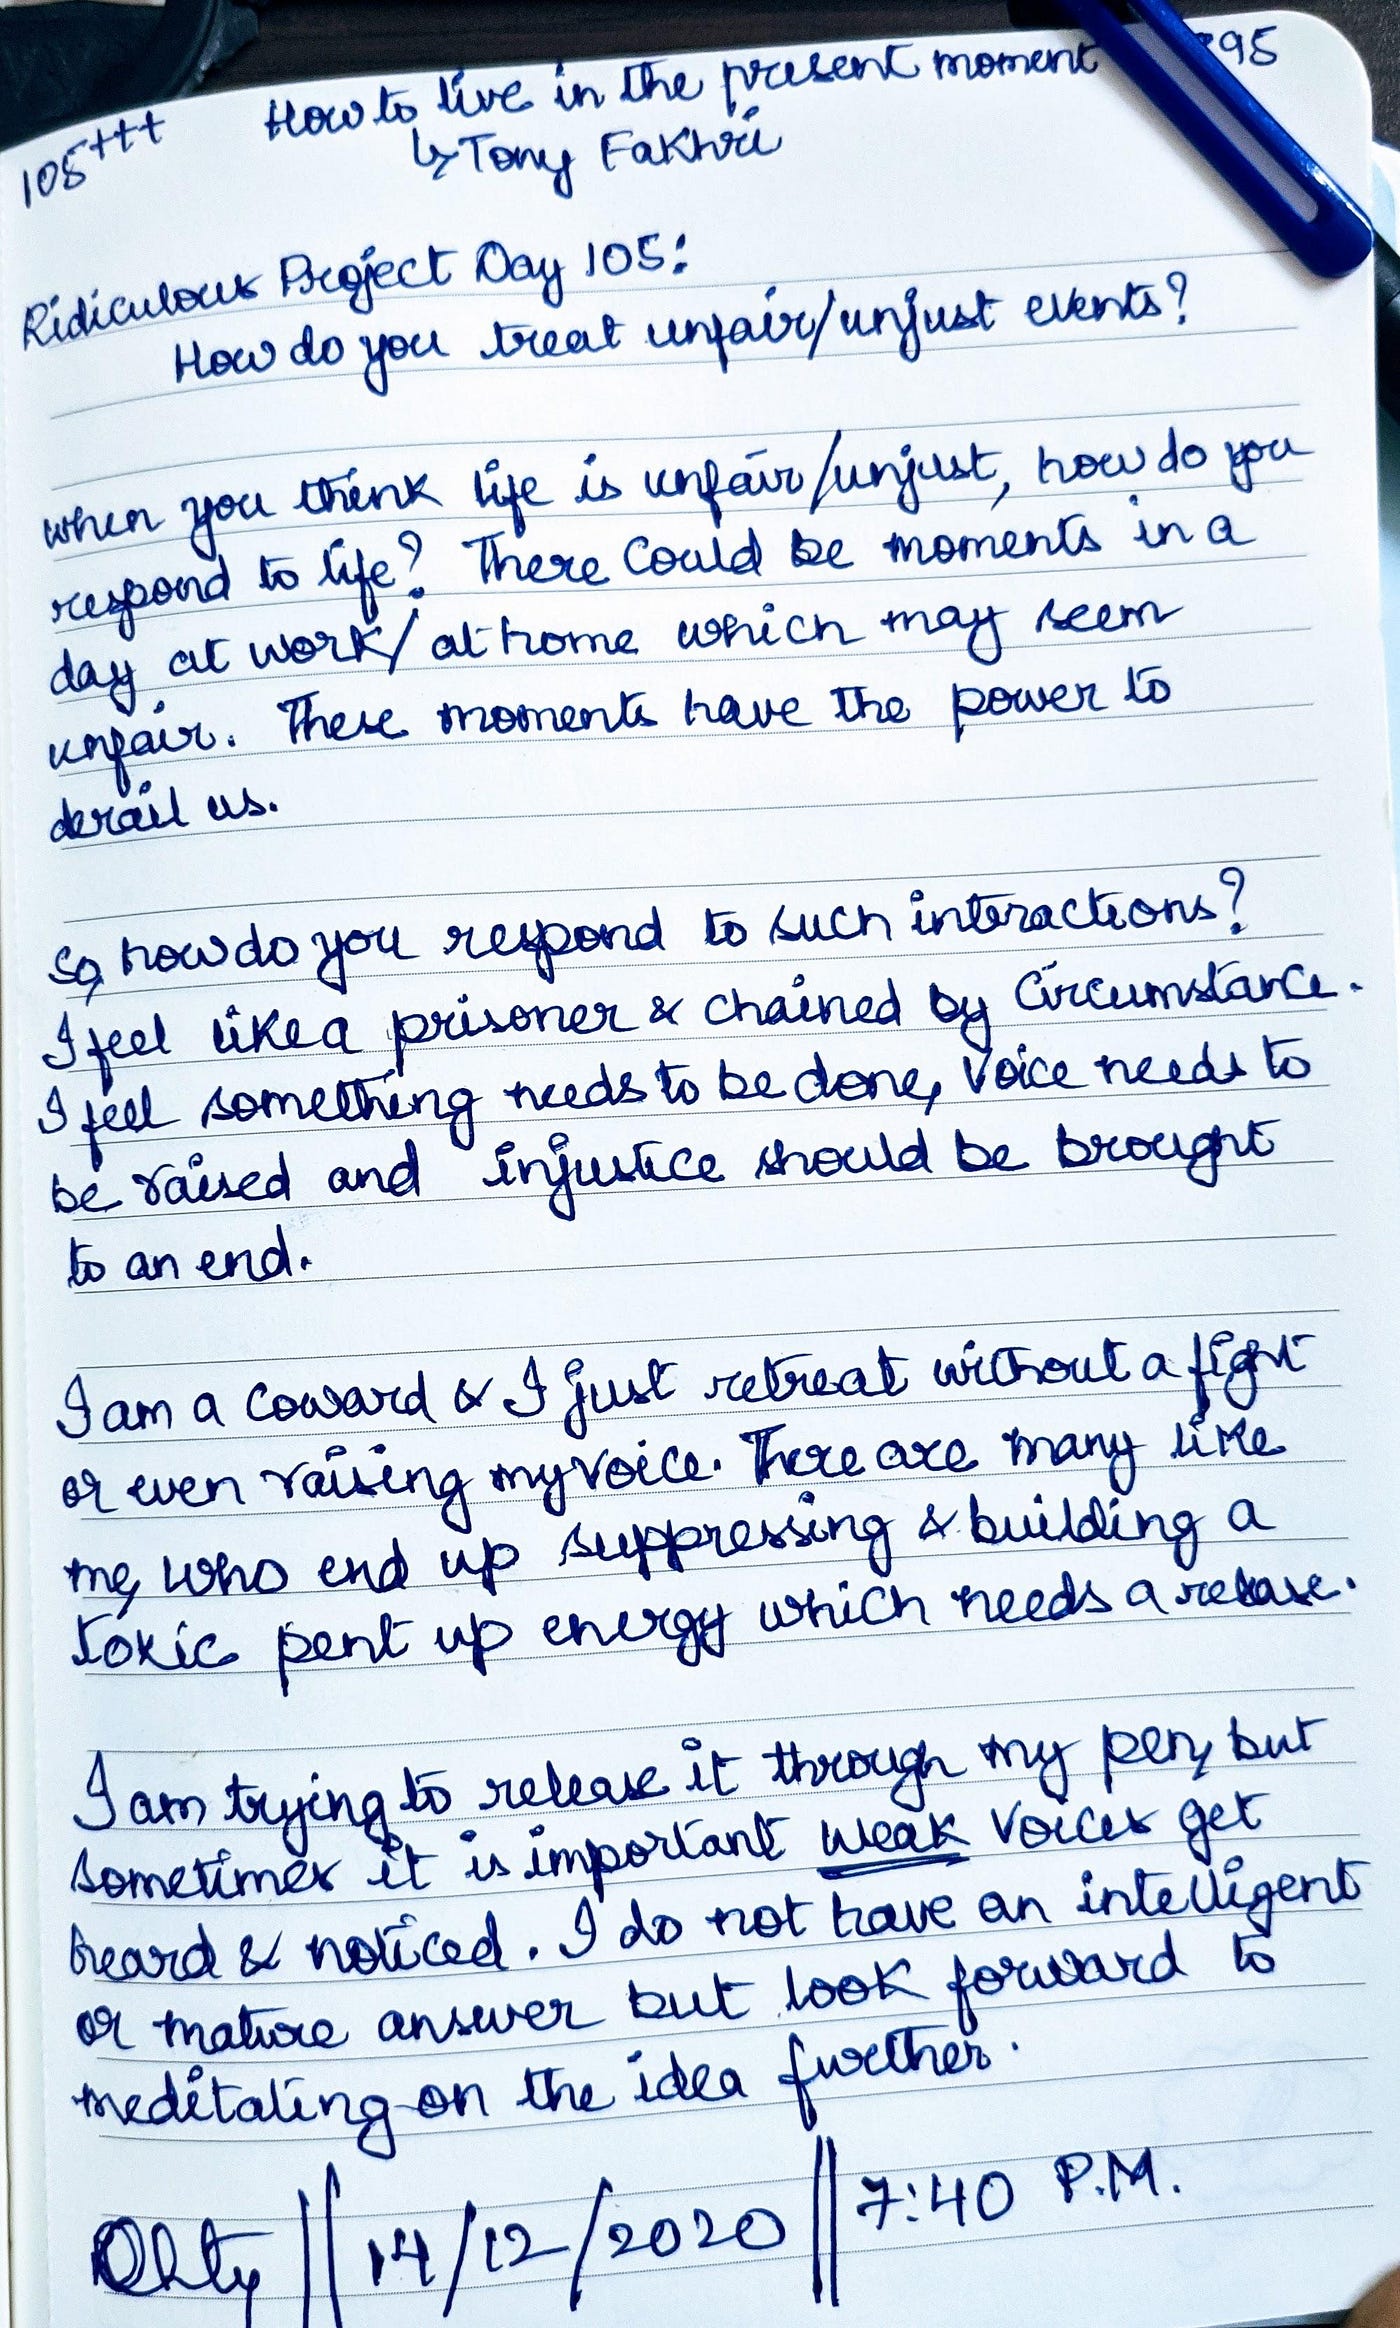 How to live in the present moment 95
105+++ ↳ Tony Fakhri
Ridiculous Project Day 105:
How do you treat unfair/unjust events?
when you think life is unfair/unjust, how do you
respond to life? There could be moments in a
day at work/at home which may seem
unfair. These moments have the power to
derail us.
So, how do you respond to such interactions?
I feel like a prisoner & chained by circumstance.
I feel something needs to be done, voice needs to
be raised and injustice should be brought
to an end.
I am a coward & I just retreat without a fight
or even raising my voice. There are many like
me, who end up suppressing & building a
toxic pent up energy which needs a release.
I am trying to release it through my pen, but
sometimes it is important weak voices get
heard & noticed. I do not have an intelligent
or mature answer but look forward to
meditating on the idea further.
|| 14/12/2020 || 7:40 P.M.